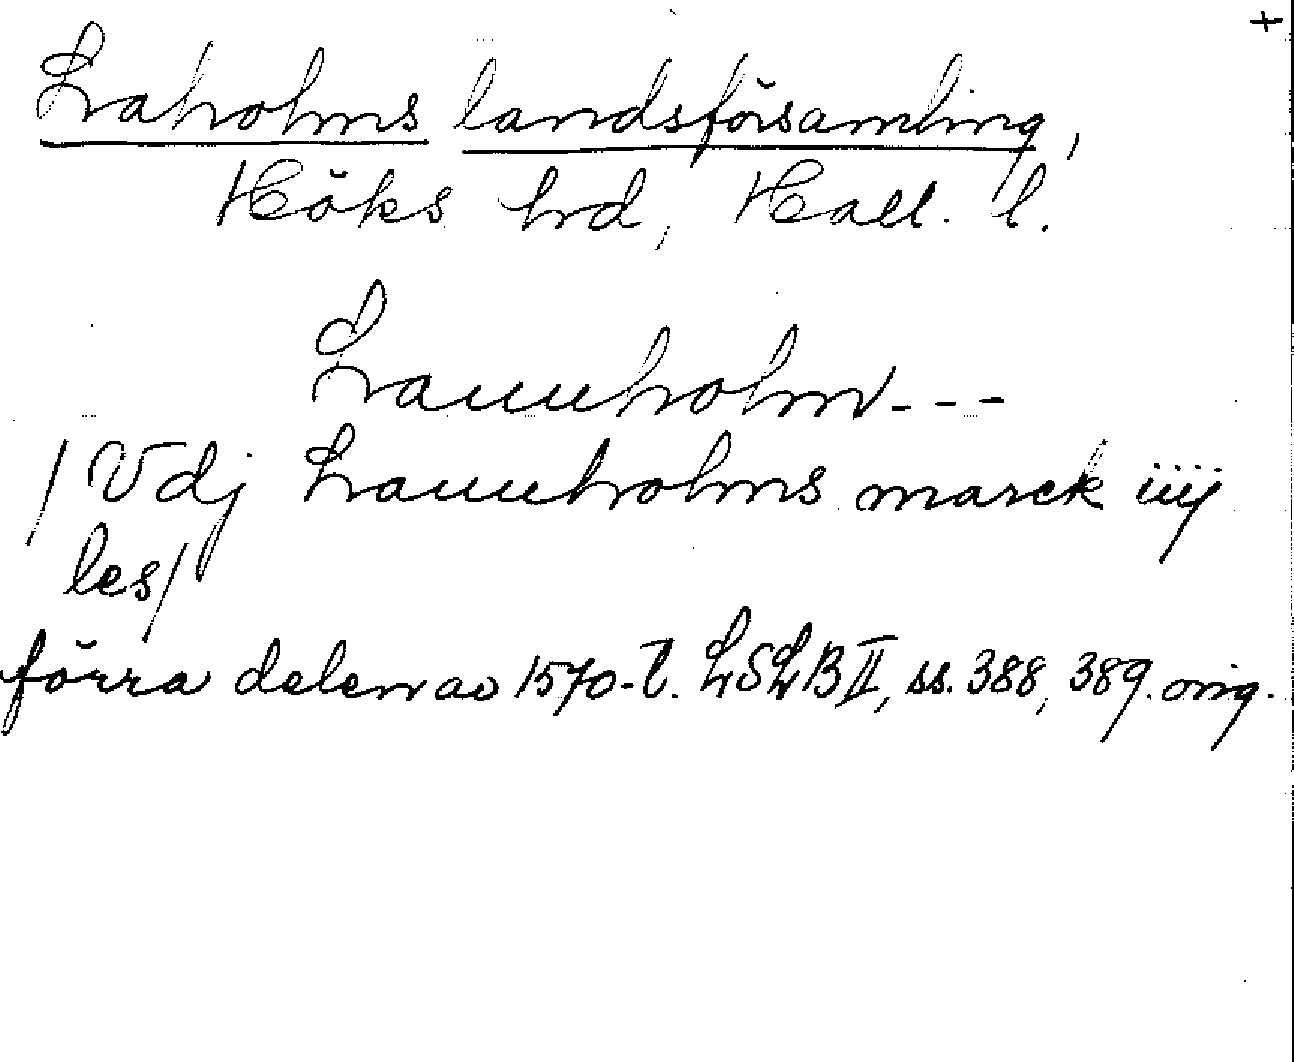 +
Laholms landsförsamling,
Höks hrd, Hall. l.
Lauuholm---
/Vdj Lauuholms marck iiij
les/
förra delen av 1570-t. LSLB II, ss. 388, 389. orig.